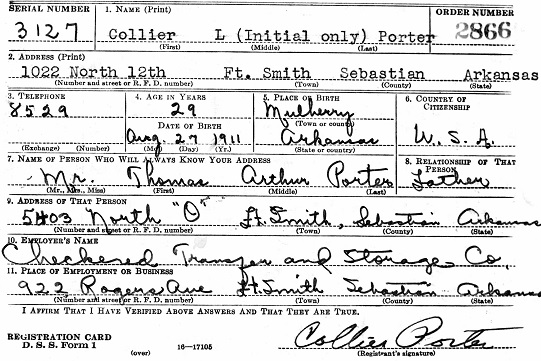 SERIAL NUMBER 1. NAME (Print) ORDER NUMBER
3127 Collier L (Initial only) Porter 2866
(First) (Middle) (Last)
2. ADDRESS (Print)
1022 North 12th Ft. Smith Sebastian Arkansas
(Number and street or R. F. D. number) (Town) (County) (State)
3. TELEPHONE 4. AGE IN YEARS 5. PLACE OF BIRTH 6. COUNTRY OF CITIZENSHIP
8529 29 Mulberry
DATE OF BIRTH (Town or county)
Aug. 27 1911 Arkansas U.S.A.
(Exchange) (Number) (Mo.) (Day) (Yr.) (State or country)
7. NAME OF PERSON WHO WILL ALWAYS KNOW YOUR ADDRESS 8. RELATIONSHIP OF THAT PERSON
Mr. Thomas Arthur Porter Father
(Mr., Mrs., Miss) (First) (Middle) (Last)
9. ADDRESS OF THAT PERSON
5403 North "O" Ft. Smith, Sebastian Arkansas
(Number and street or R. F. D. number) (Town) (County) (State)
10. EMPLOYER'S NAME
Checkered Transfer and Storage Co.
11. PLACE OF EMPLOYMENT OR BUSINESS
922 Rogers Ave Ft. Smith Sebastian Arkansas
(Number and street or R. F. D. number) (Town) (County) (State)
I AFFIRM THAT I HAVE VERIFIED ABOVE ANSWERS AND THAT THEY ARE TRUE.
REGISTRATION CARD Collier Porter
D. S. S. Form 1 (over) 16—17105 (Registrant's signature)